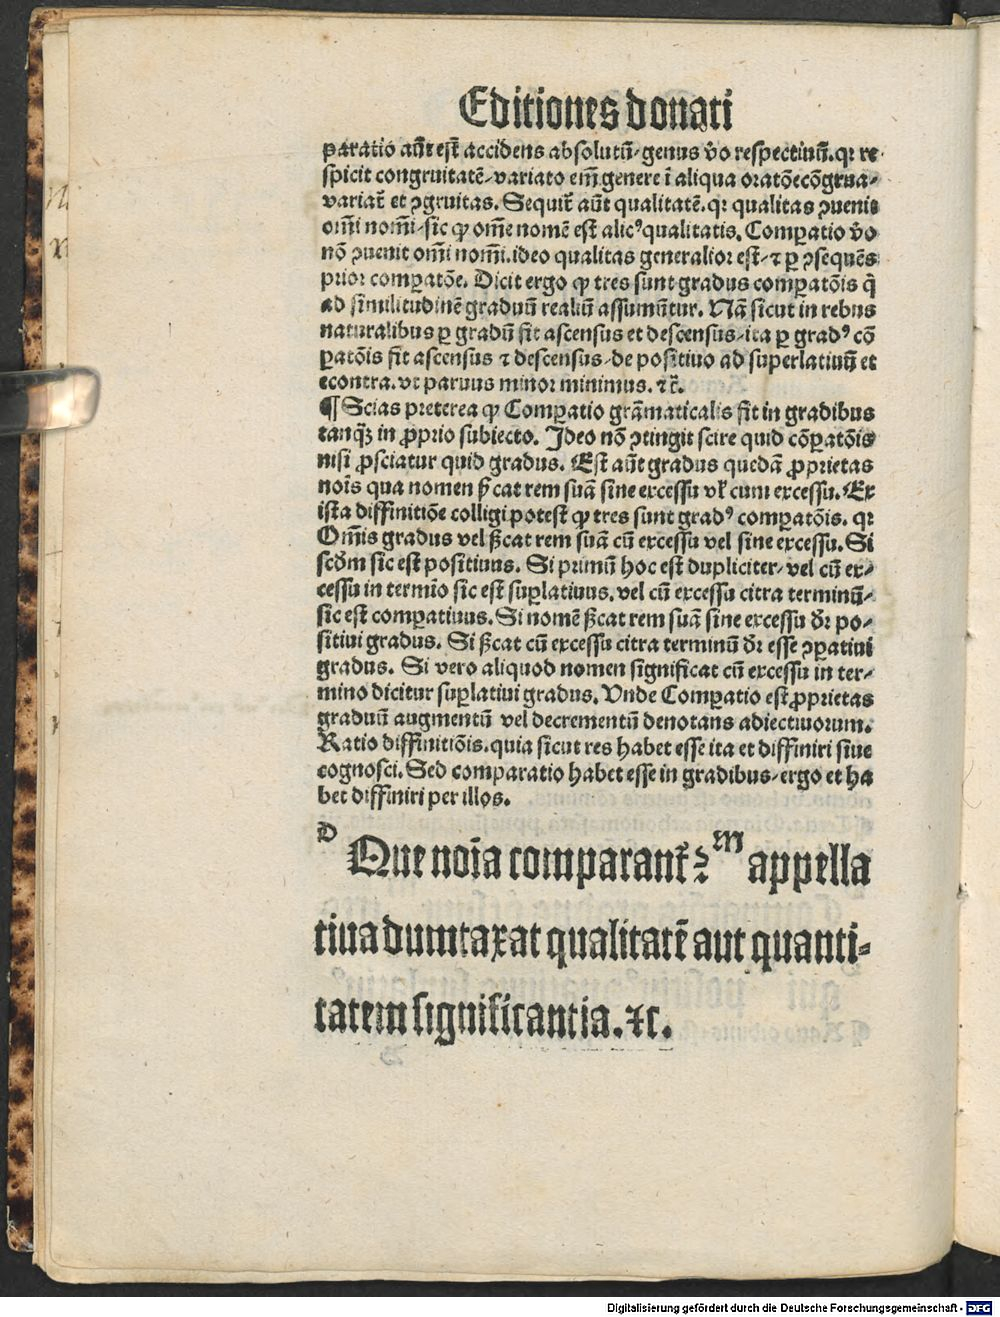 Editiones donati
paratio aūt est accidens absolutū/genus v̄o respectiuū.qꝛ re
spicit congruitatē/variato em̄ genere ī aliqua oratōe cōgrua/
variat̄ et ꝯgruitas. Sequit̄ aūt qualitatē.qꝛ qualitas ꝯuenit
om̄i nom̄i/sic ꝙ om̄e nomē est alicꝰ qualitatis. Comꝑatio v̄o
nō ꝯuenit om̄i nom̄i.ideo qualitas generalior est/⁊ ꝑ ꝯsequēs
prior comꝑatōe. Dicit ergo ꝙ tres sunt gradus comꝑatōis q̄
ad similitudinē graduū realiū assumūtur. Nā sicut in rebus
naturalibus ꝑ gradū fit ascensus et descensus/ita ꝑ gradꝰ cō
ꝑatōis fit ascensus ⁊ descensus/de positiuo ad superlatiuū et
econtra.vt paruus minor minimus.⁊c̄.
¶ Scias preterea ꝙ Comꝑatio grāmaticalis fit in gradibus
tanqꝫ in ꝓprio subiecto. Ideo nō ꝯtingit scire quid cōꝑatōis
nisi ꝓsciatur quid gradus. Est aūt gradus quedā ꝓprietas
nois qua nomen ẜcat rem suā sine excessu vl̓ cum excessu. Ex
ista diffinitiōe colligi potest ꝙ tres sunt gradꝰ comꝑatōis. qꝛ
Om̄is gradus vel ẜcat rem suā cū excessu vel sine excessu. Si
scd̓m sic est positiuus. Si primū hoc est dupliciter/vel cū ex/
cessu in termīo sic est suꝑlatiuus.vel cū excessu citra terminū/
sic est comꝑatiuus. Si nomē ẜcat rem suā sine excessu dꝛ̄ po/
sitiui gradus. Si ẜcat cū excessu citra terminū dꝛ̄ esse ꝯꝑatiui
gradus. Si vero aliquod nomen significat cū excessu in ter/
mino dicitur suꝑlatiui gradus. Vnde Comꝑatio est ꝓprietas
graduū augmentū vel decrementū denotans adiectiuorum.
Ratio diffinitiōis.quia sicut res habet esse ita et diffiniri siue
cognosci. Sed comparatio habet esse in gradibus/ergo et ha
bet diffiniri per illos.
D Que noīa comparant̄? M appella
tiua dumtaxat qualitatē aut quanti/
tatem significantia.⁊c.
Digitalisierung gefördert durch die Deutsche Forschungsgemeinschaft - DFG